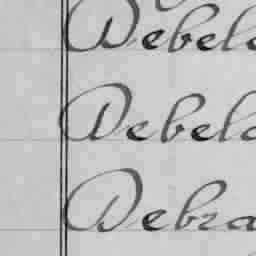 Debela
Debela
Debra